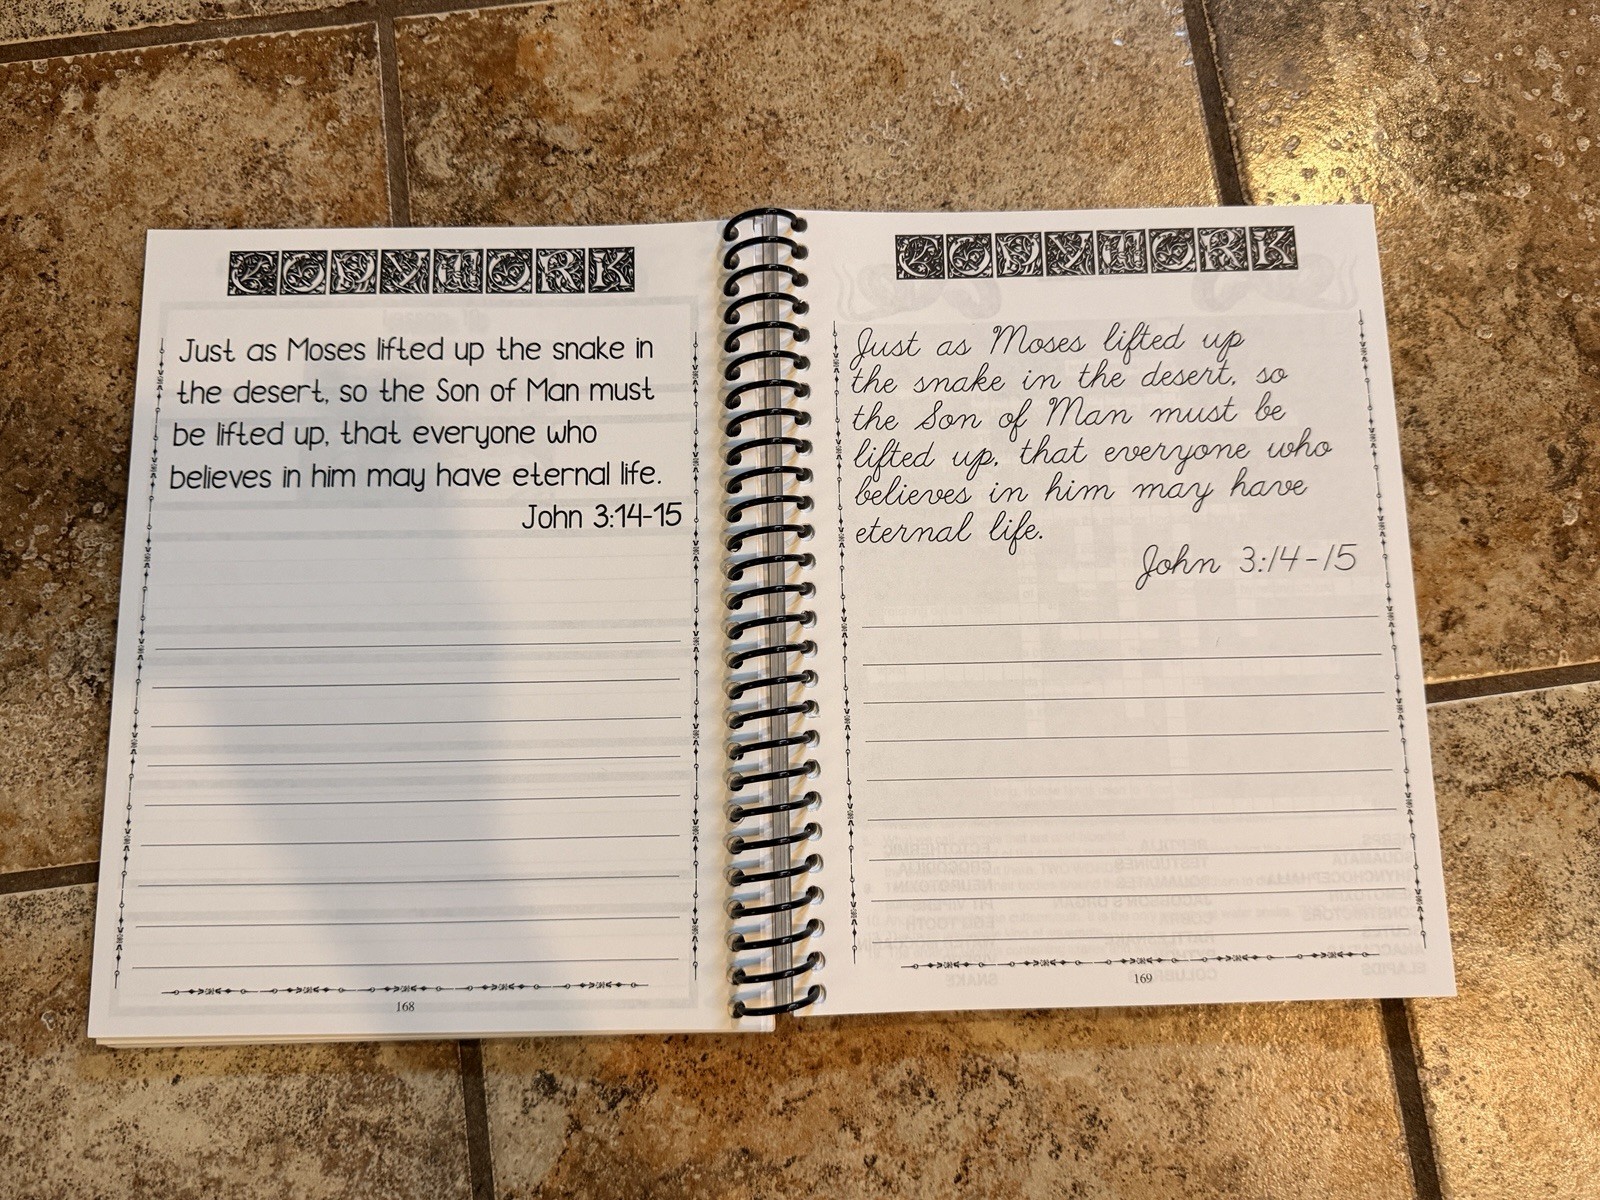 COPYWORK
Just as Moses lifted up the snake in
the desert, so the Son of Man must
be lifted up, that everyone who
believes in him may have eternal life.
John 3:14-15
168
COPYWORK
Just as Moses lifted up
the snake in the desert, so
the Son of Man must be
lifted up, that everyone who
believes in him may have
eternal life.
John 3:14-15
169